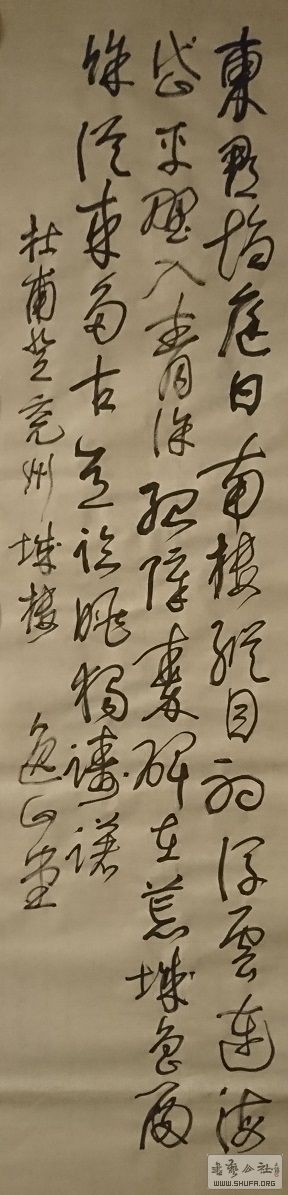 東郡趨庭日南樓縱目初浮雲連海
岱平野入青徐孤嶂秦碑在荒城魯殿
餘從來多古意臨眺獨躊躇
杜甫登兗州城樓
書藝公社
WWW.SHUFA.ORG